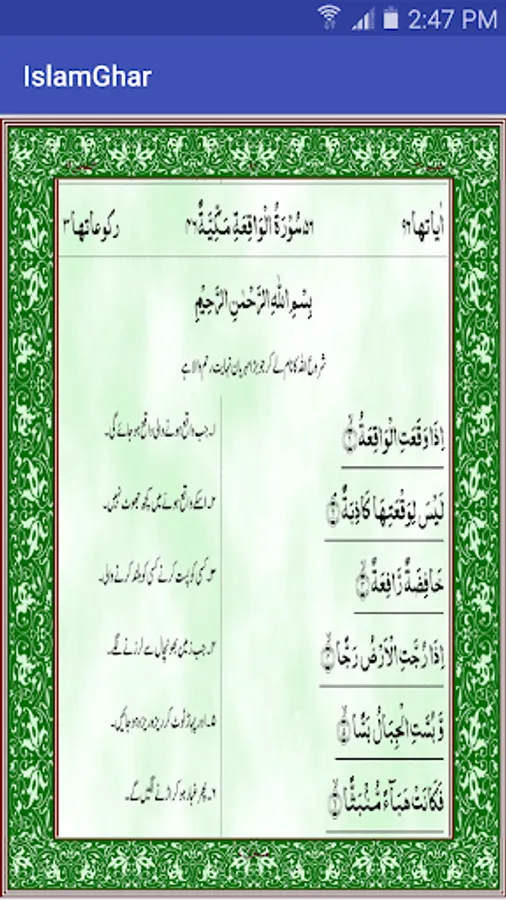 2:47 PM
IslamGhar
اٰیاتھا ۹۶ ۵۶ سُوْرَۃُ الْوَاقِعَۃِ مَکِّیَّۃٌ ۴۶ رکوعاتھا ۳
بِسْمِ اللّٰهِ الرَّحْمٰنِ الرَّحِیْمِ
شروع اللہ کا نام لے کر جو بڑا مہربان نہایت رحم والا ہے
اِذَا وَقَعَتِ الْوَاقِعَةُ ۱ ۱۔ جب واقع ہونے والی واقع ہو جائے گی۔
لَیْسَ لِوَقْعَتِهَا كَاذِبَةٌ ۲ ۲۔ اسکے واقع ہونے میں کچھ جھوٹ نہیں۔
خَافِضَةٌ رَّافِعَةٌ ۳ ۳۔ کسی کو پست کرنے کسی کو بلند کرنے والی۔
اِذَا رُجَّتِ الْاَرْضُ رَجًّا ۴ ۴۔ جب زمین بھونچال سے لرزنے لگے۔
وَّ بُسَّتِ الْجِبَالُ بَسًّا ۵ ۵۔ اور پہاڑ ٹوٹ کر ریزہ ریزہ ہو جائیں۔
فَكَانَتْ هَبَآءً مُّنْۢبَثًّا ۶ ۶۔ پھر غبار ہو کر اڑنے لگیں گے۔